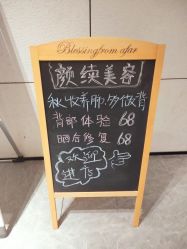 Blessing from afar
颜续美容
秋收养丽，多做背
背部体验 68
晒后修复 68
欢迎
进店